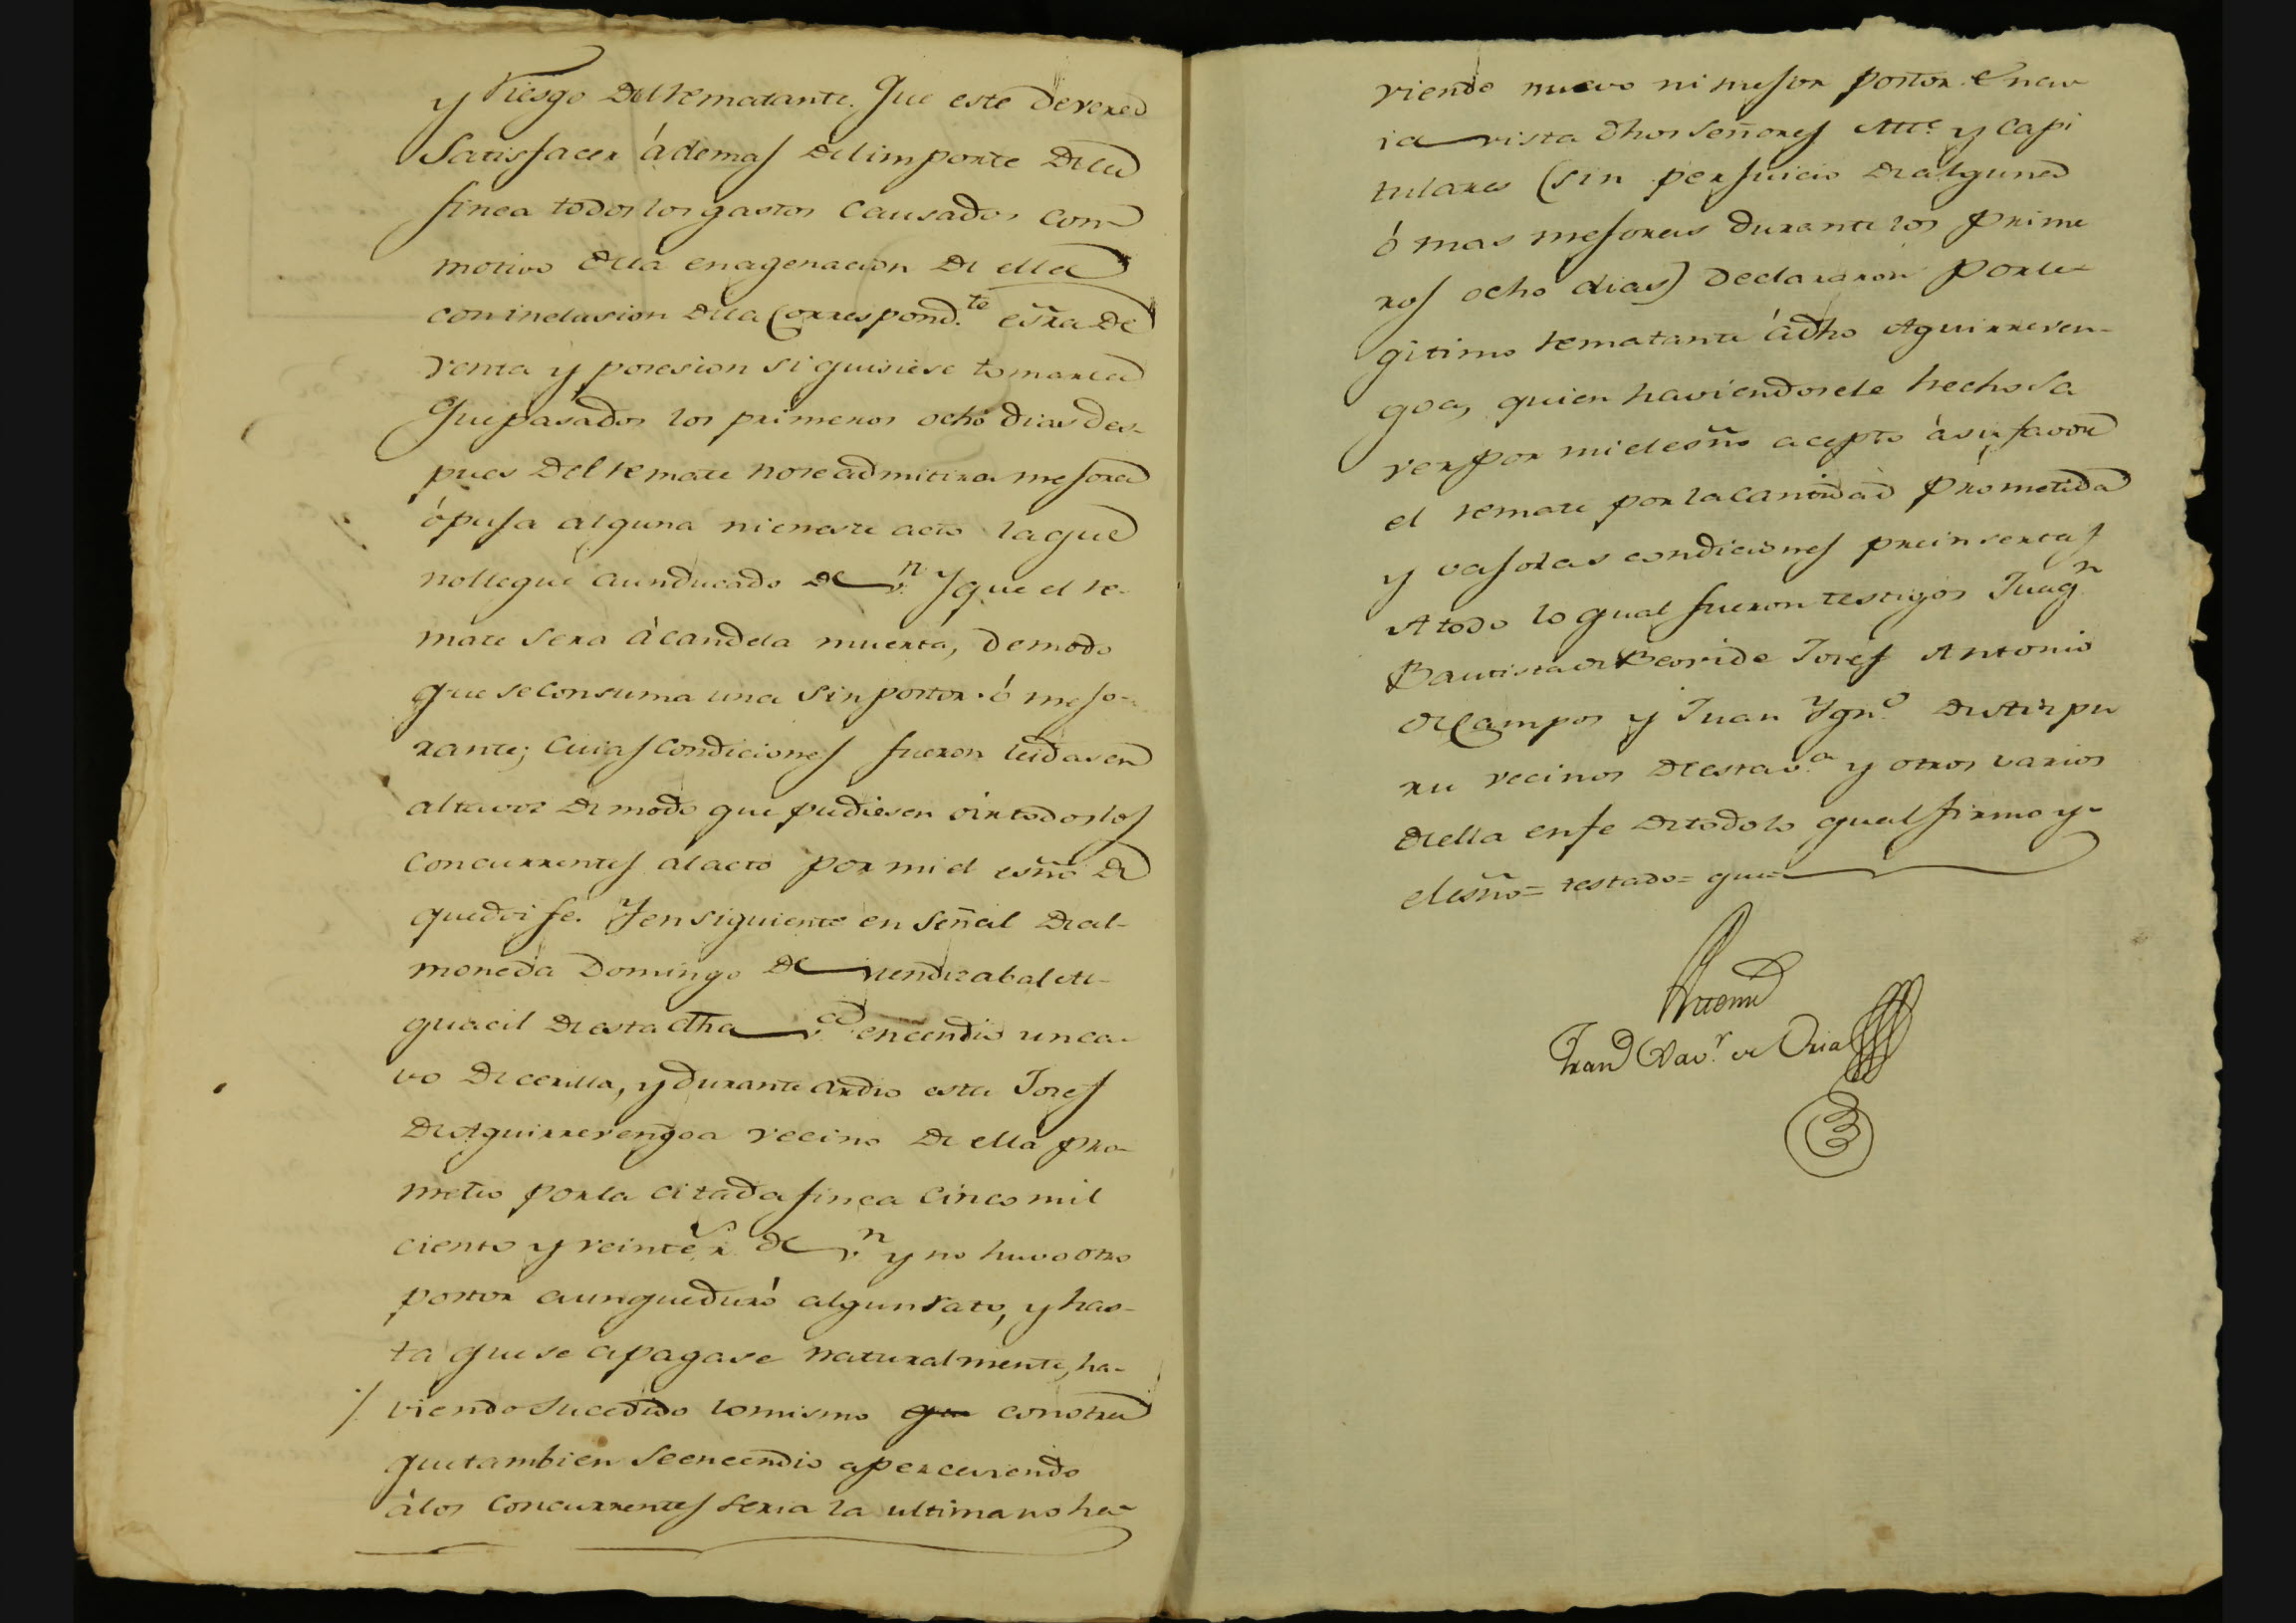 y Riesgo del rematante. Que este devera
Satisfacer â demas del importe de la
finca todos los gastos causados con
motivo de la enagenacion de ella
con inclusion de la correspond.te esc̃ra de
venta y posesion si quisiese tomarla
Que pasados los primeros ocho dias des-
pues del remate no se admitira mejora
ó puja alguna ni en este acto la que
no llegue a un ducado de v.n Y que el re-
mate sera â candela muerta, de modo
que se consuma una sin postor ó mejo-
rante; cuias condiciones fueron leidas en
alta voz de modo que pudiesen oir todos los
concurrentes al acto por mi el esñō de
que doi fe. Y en siguiente en señal de al-
moneda Domingo de Mendizabal Al-
guacil de esta dha v.a encendio un ca-
vo de cerilla, y durante ardio esta Josef
de Aguirrevengoa vecino de ella pro-
metio por la citada finca cinco mil
ciento y veinte r.s de v.n y no huvo otro
postor aunque duró algun rato, y has-
ta que se apagase naturalmente, ha-
viendo sucedido lo mismo que con otra
que tambien se encendio aperciviendo
á los concurrentes seria la ultima no ha-
viendo nuevo ni mejor postor. En cu-
ia vista dhos señores Alc.e y Capi
tulares (sin perjuicio de alguna
ó mas mejoras durante los prime
ros ocho dias) declararon por le-
gitimo rematante á dho Aguirreven-
goa, quien haviendosele hecho sa
ver por mi el esñō acepto á su favor
el remate por la cantidad prometida
y vajo las condiciones preinsertas
A todo lo qual fueron testigos Juaq.n
Bautista de Beovide Josef Antonio
de Campos y Juan Ygn.o de Aizpu
ru vecinos de esta v.a y otros varios
de ella en fe de todo lo qual firmo yo
el esñō = testado = que =
Ante mi
Fran.co Xav.r de Oria